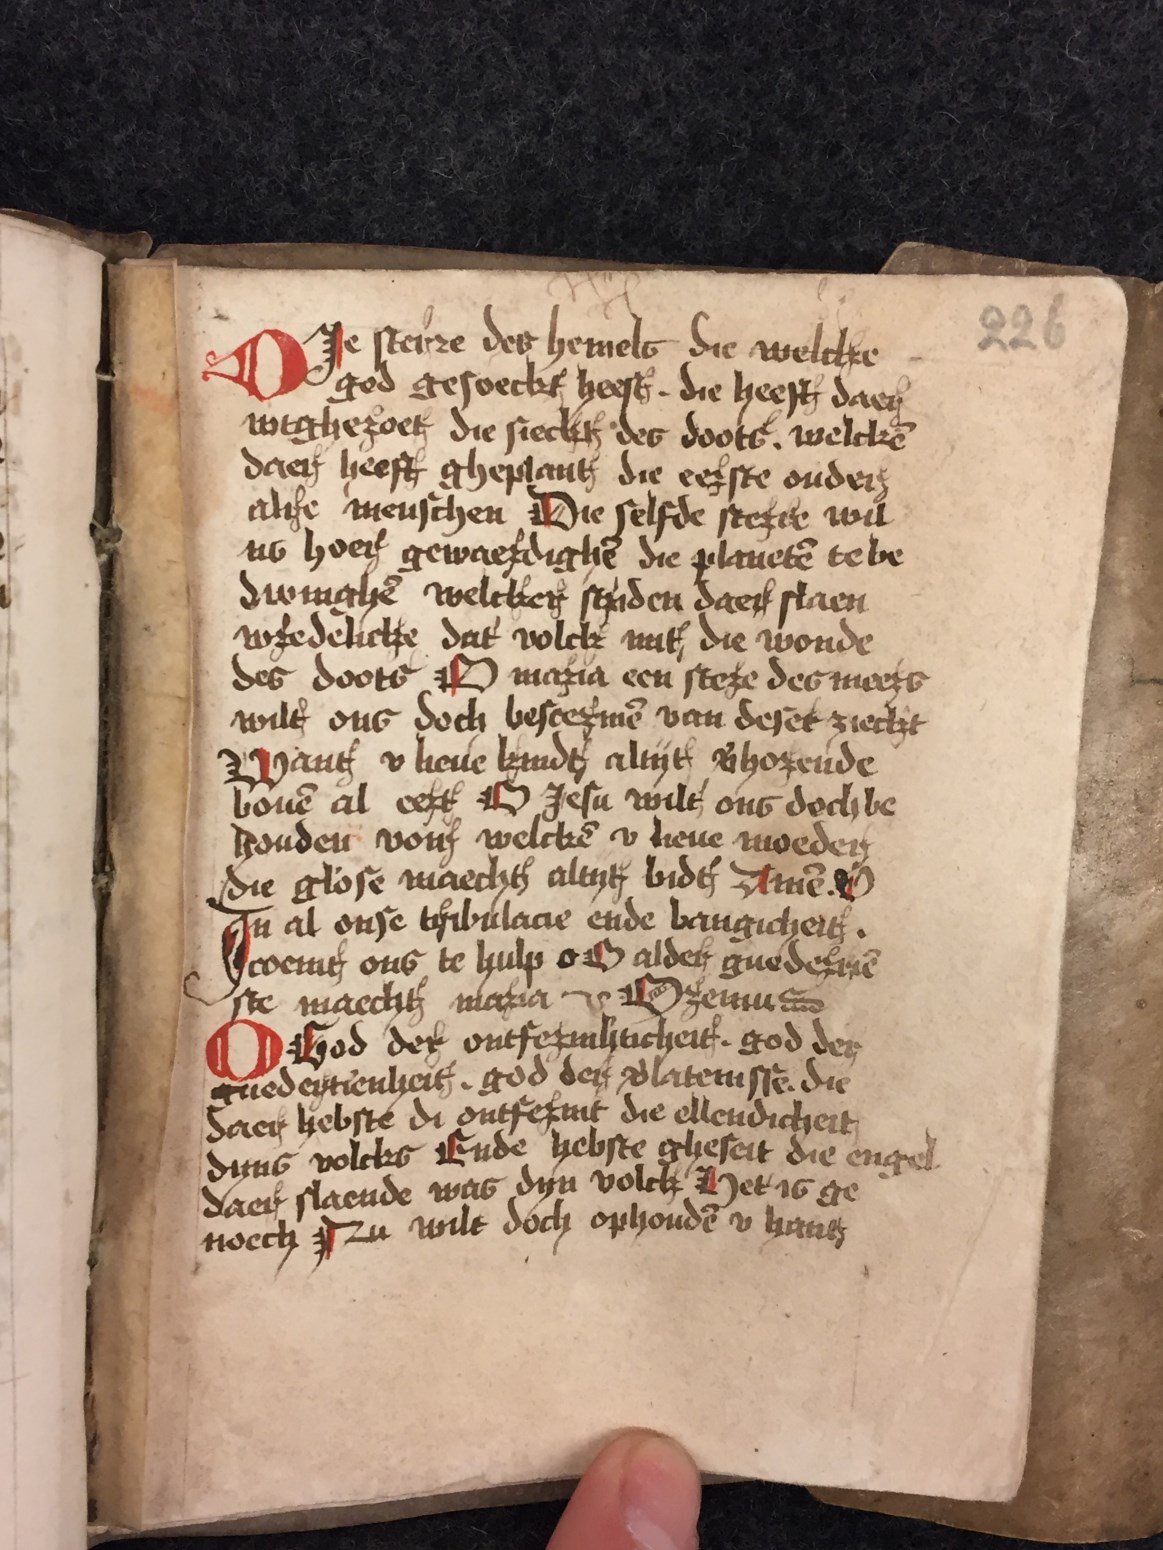 226
DIe sterre des hemels die welcke
god gesoeckt heeft. die heeft daer
wtgheroet die sieckt des doots. welckē
daer heeft gheplant die eerste ouder
alre menschen Die selfde sterre wil
ns hoer gewaerdighē die planetē te be
dwinghē welcker stryden daer slaen
wredelicke dat volck mit die wonde
des doots O maria een sterre des meers
wilt ons doch bescermē van deser zieckt
Want v lieue kindt altyt v̄horende
bouē al eert O Jesu wilt ons doch be
houden voer welckē v lieue moeder
die glose maecht altyt bidt Amē. O
In al onse tribulacie ende bangicheit.
coemt ons te hulp o O alder guedertiē
ste maecht maria Oremus
O God der ontfermhticheit. god der
guedertienheit. god der v̄latenisse. die
daer hebste di ontfermt die ellendicheit
dyns volcks Ende hebste gheseit die engel
daer slaende was dyn volck Het is ge
noech Nu wilt doch ophoudē v hant